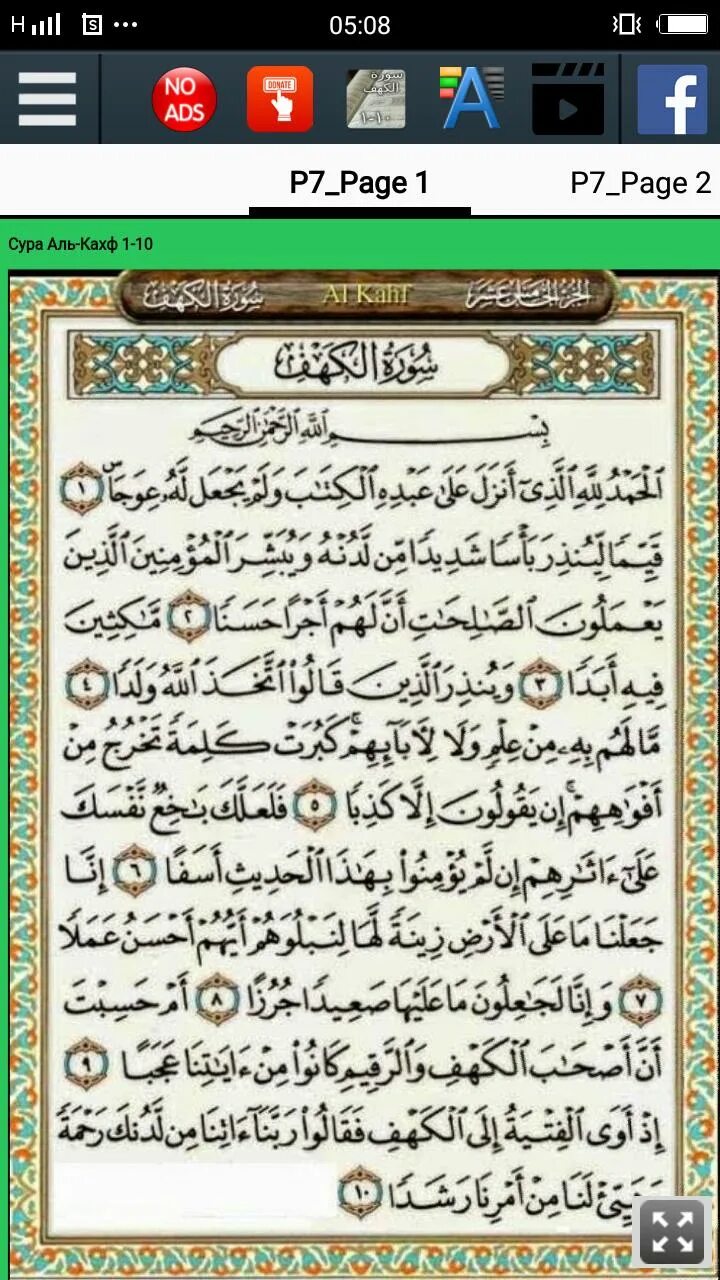 H 05:08
NO ADS DONATE سورة الكهف ١-١٠ A f
P7_Page 1 P7_Page 2
Сура Аль-Кахф 1-10
سُورَةُ الكَهْفِ Al Kahf الجزء الخامس عشر
سُورَةُ الكَهْفِ
بِسْمِ اللَّهِ الرَّحْمَٰنِ الرَّحِيمِ
الْحَمْدُ لِلَّهِ الَّذِي أَنزَلَ عَلَىٰ عَبْدِهِ الْكِتَابَ وَلَمْ يَجْعَل لَّهُ عِوَجَا ۜ ١
قَيِّمًا لِّيُنذِرَ بَأْسًا شَدِيدًا مِّن لَّدُنْهُ وَيُبَشِّرَ الْمُؤْمِنِينَ الَّذِينَ
يَعْمَلُونَ الصَّالِحَاتِ أَنَّ لَهُمْ أَجْرًا حَسَنًا ٢ مَّاكِثِينَ
فِيهِ أَبَدًا ٣ وَيُنذِرَ الَّذِينَ قَالُوا اتَّخَذَ اللَّهُ وَلَدًا ٤
مَّا لَهُم بِهِ مِنْ عِلْمٍ وَلَا لِآبَائِهِمْ ۚ كَبُرَتْ كَلِمَةً تَخْرُجُ مِنْ
أَفْوَاهِهِمْ ۚ إِن يَقُولُونَ إِلَّا كَذِبًا ٥ فَلَعَلَّكَ بَاخِعٌ نَّفْسَكَ
عَلَىٰ ءَاثَارِهِمْ إِن لَّمْ يُؤْمِنُوا بِهَٰذَا الْحَدِيثِ أَسَفًا ٦ إِنَّا
جَعَلْنَا مَا عَلَى الْأَرْضِ زِينَةً لَّهَا لِنَبْلُوَهُمْ أَيُّهُمْ أَحْسَنُ عَمَلًا
٧ وَإِنَّا لَجَاعِلُونَ مَا عَلَيْهَا صَعِيدًا جُرُزًا ٨ أَمْ حَسِبْتَ
أَنَّ أَصْحَابَ الْكَهْفِ وَالرَّقِيمِ كَانُوا مِنْ ءَايَاتِنَا عَجَبًا ٩
إِذْ أَوَى الْفِتْيَةُ إِلَى الْكَهْفِ فَقَالُوا رَبَّنَا ءَاتِنَا مِن لَّدُنكَ رَحْمَةً
وَهَيِّئْ لَنَا مِنْ أَمْرِنَا رَشَدًا ١٠